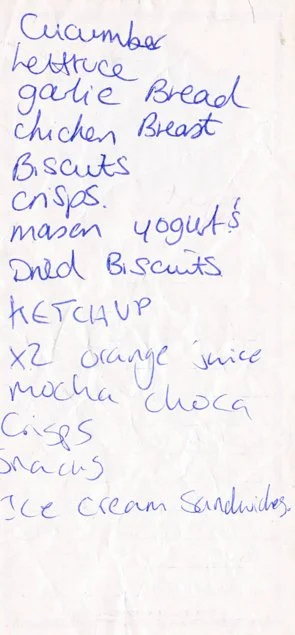 Cucumber
Lettruce
garlic Bread
chicken Breast
Biscuits
crisps.
yogurt's
Dried Biscuits
KETCHUP
x2 orange juice
mocha choca
Crisps
Snacks
Ice cream Sandwiches.